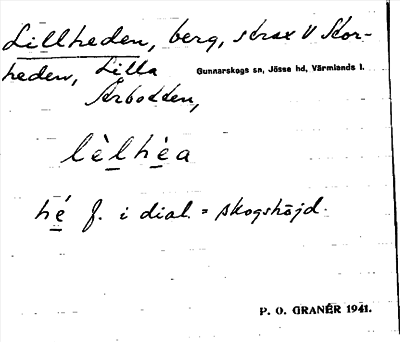 Lillheden, berg, strax V Stor-
heden, Lilla
Gunnarskogs sn, Jösse hd, Värmlands l.
Årbotten,
lèlhèa
hé f. i dial. = skogshöjd.
P. O. GRANÉR 1941.